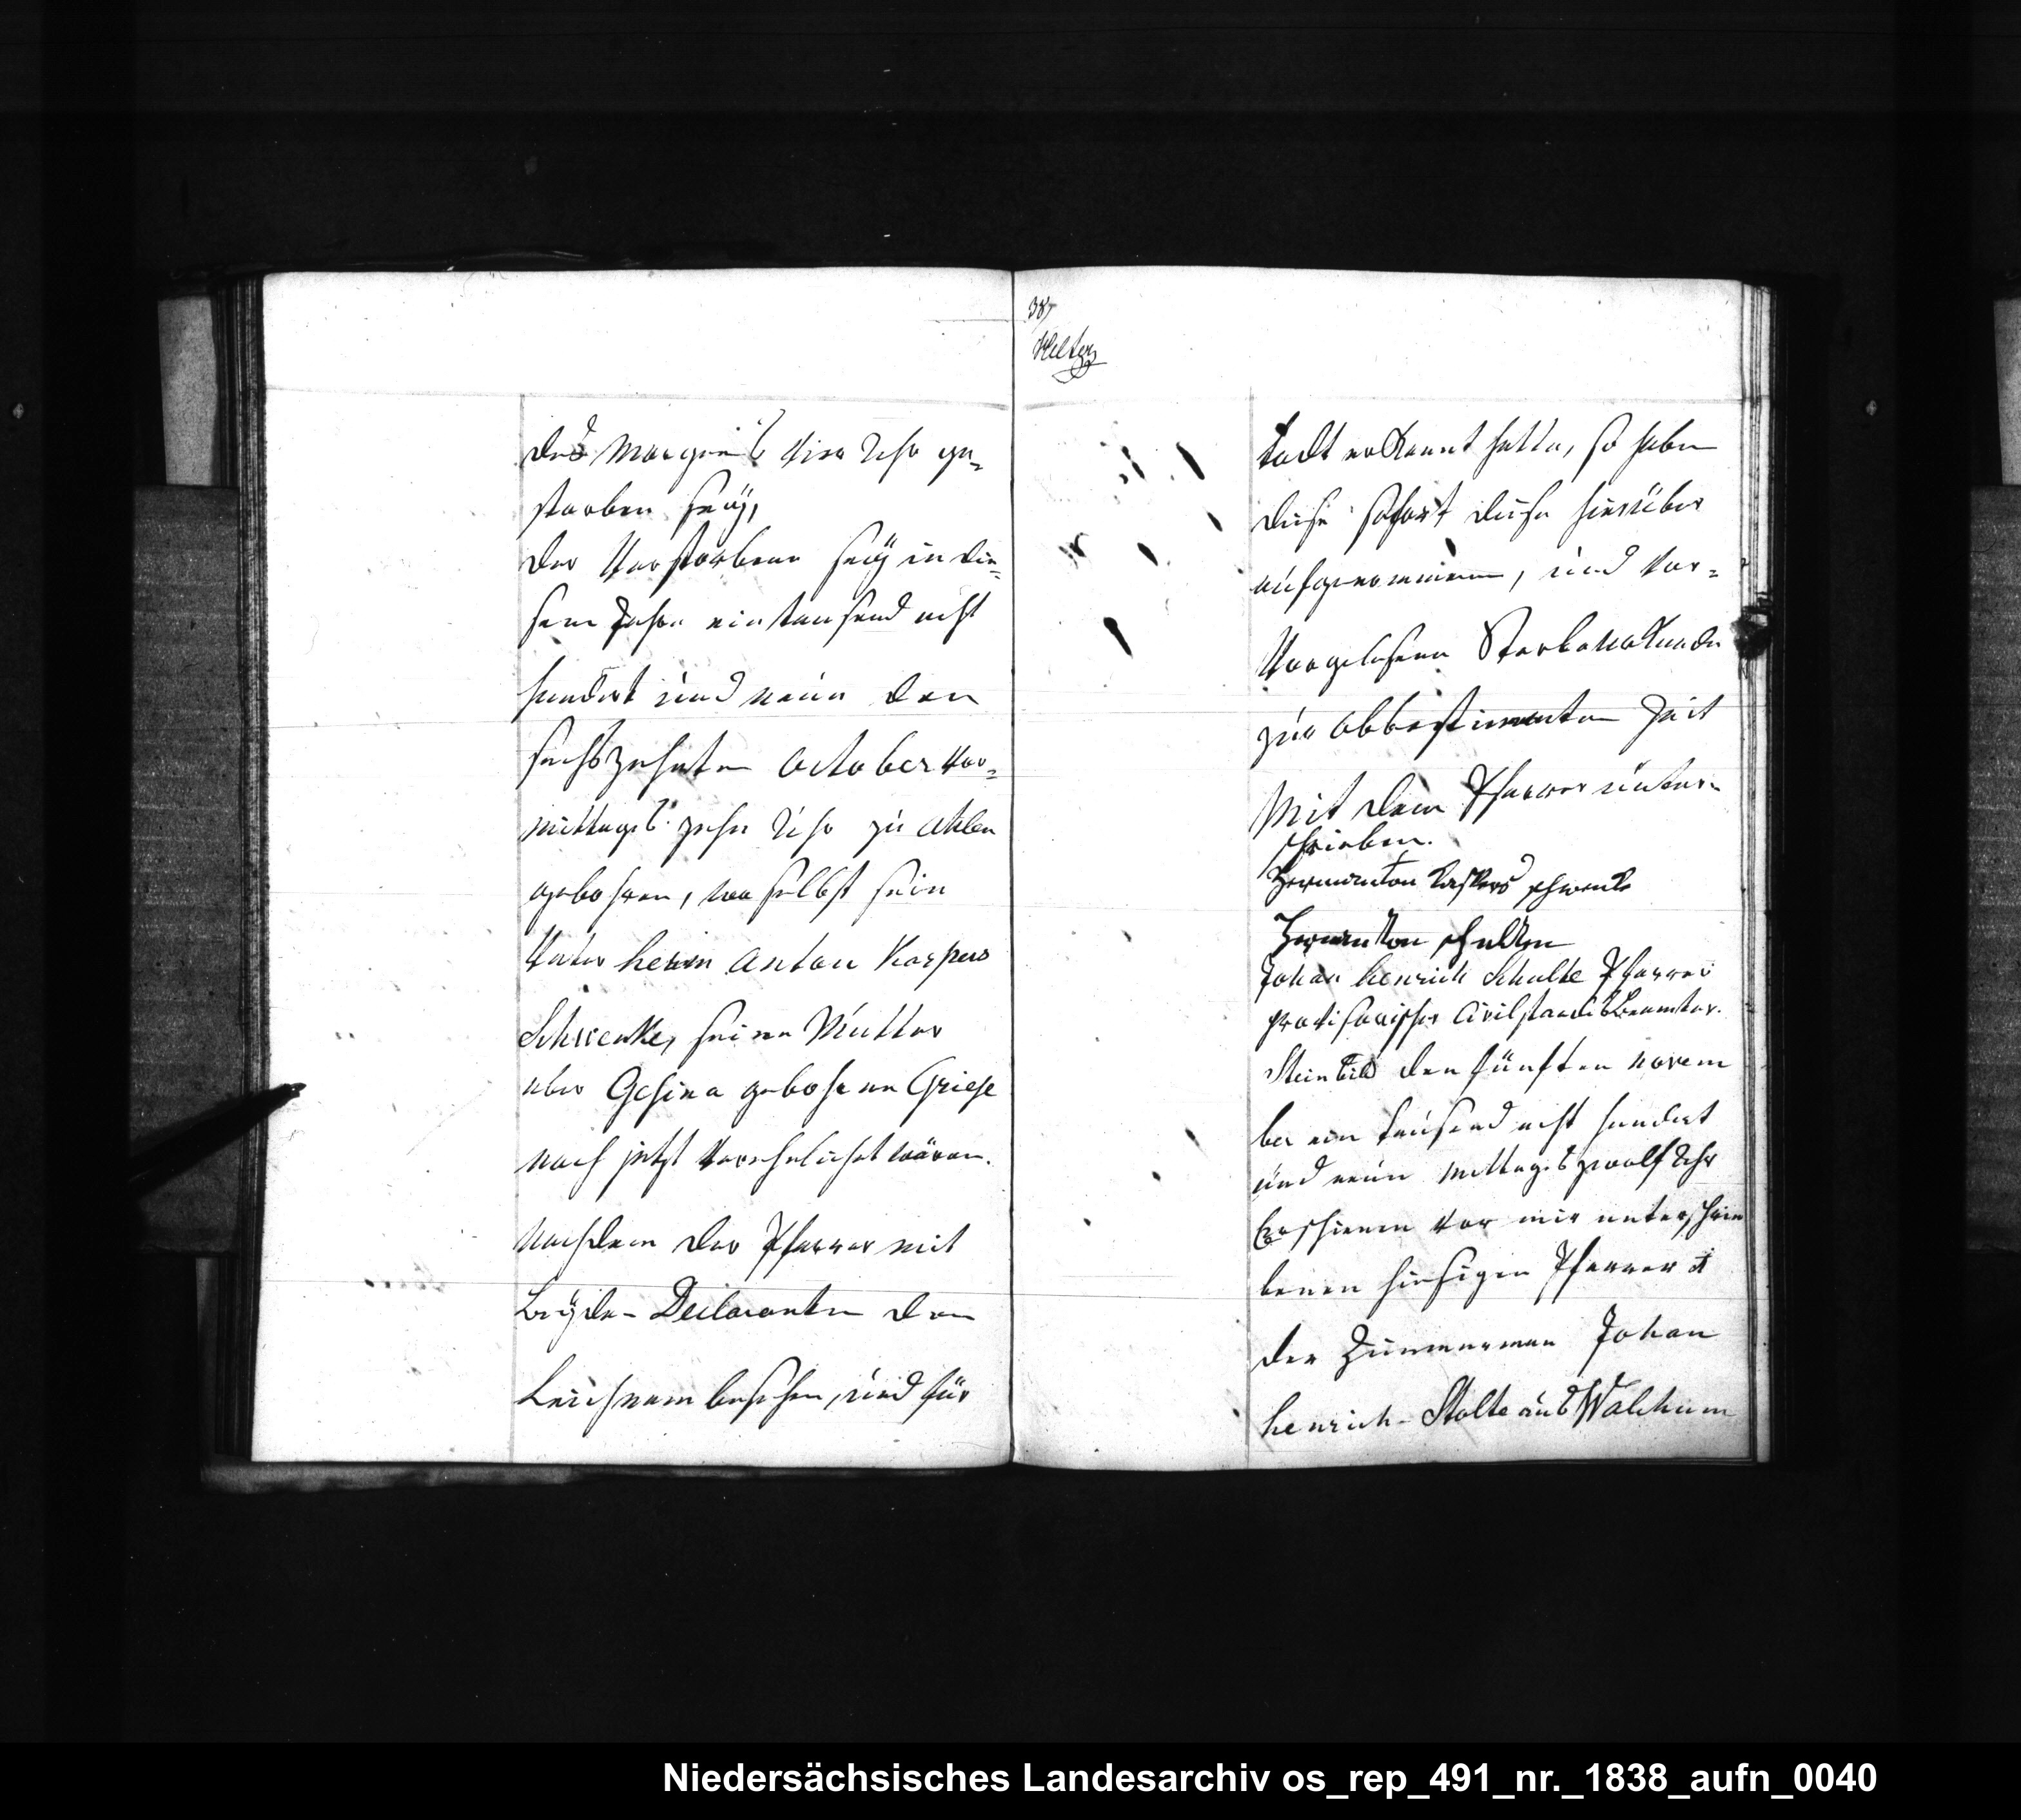 des Morgens vier Uhr ge=
storben seÿ,
der Verstorbene seÿ in die=
sem Jahre eintausend acht
hundert und neun den
sechszehnten October vor=
mittags zehn Uhr zu Ahlen
gebohren, wo selbst sein
Vater herm Anton Kaspers
Schwenke, seine Mutter
aber Gesina gebohrne Griese
noch jetzt verehelichet wären.
Nachdem der Pfarrer mit
beÿde- Declaranten den
Leichnam besehen, und für
38
todt erkannt hatte, so haben
diese sofort diese hierüber
aufgenommene, und vor=
Vorgelesene Sterbeurkunde
zur obbestimmten Zeit
Mit dem Pfarrer unter=
schrieben.
Hermanton Kaspers schwenke
Hermanton schulten
Johan henrich Schulte Pfarrer
provisorischer Civilstandsbeamter.
Steinbild den fünften novem
ber ein tausend acht hundert
und neun mittags zwolf Uhr
Erschienen vor mir unterschrie
benen hiesigen Pfarrer
der Zimmerman Johan
henrich- Stolte aus Walchum
Niedersächsisches Landesarchiv os_rep_491_nr._1838_aufn_0040